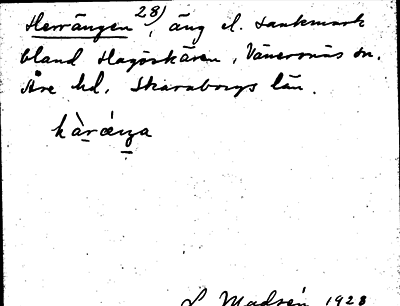 Herrängen 28), äng el. sankmark
bland Hagöskären, Vänersnäs sn.
Åse hd. Skaraborgs län.
hàrǽŋa
L. Madsén 1928